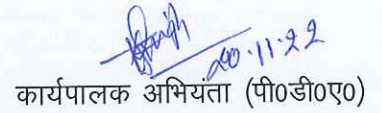 20.11.22
कार्यपालक अभियंता (पी0डी0ए0)